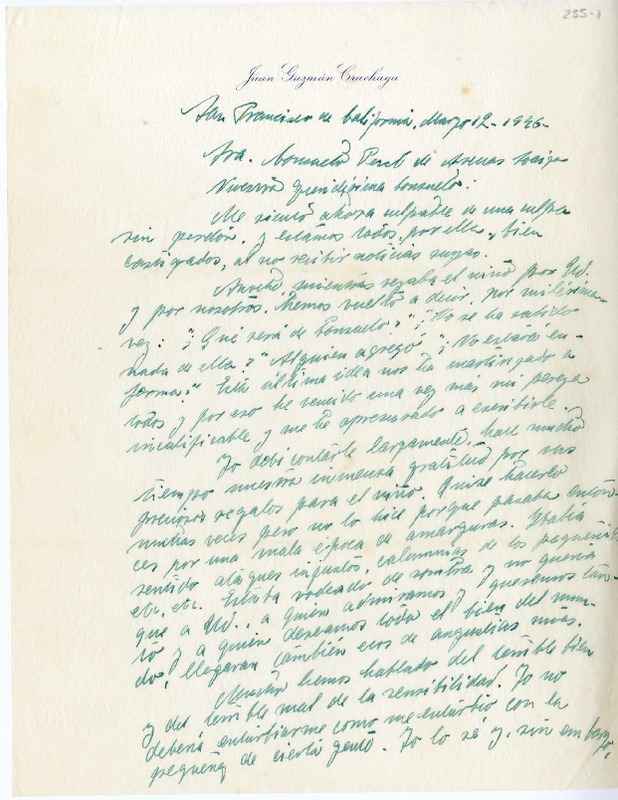 255-1
Juan Guzmán Cruchaga
San Francisco de California, Marzo 12-1946-
Sra. Consuelo de
Nuestra queridísima Consuelo:
Me siento ahora culpable de una culpa
sin perdón, y estamos todos, por ella, bien
castigados, al no recibir noticias suyas.
Anoche, mientras rezaba el niño por Ud.
y por nosotros, hemos vuelto a decir, por milésima
vez: "¿Qué será de Consuelo?" "¿No se ha sabido
nada de ella?" Alguien agregó "¿No estará en-
ferma?" Esta última idea nos ha martirizado a
todos y por eso he vencido una vez más mi pereza
incalificable y me he apresurado a escribirle.
Yo debí contarle largamente, hace mucho
tiempo nuestra inmensa gratitud por sus
preciosos regalos para el niño. Quise hacerlo
muchas veces pero no lo hice porque pasaba enton-
ces por una mala época de amarguras. Había
sentido ataques injustos, calumnias de los pequeños
etc. etc. Estaba rodeado de sombra y no quería
que a Ud., a quien admiramos y queremos tan-
to y a quien deseamos todo el bien del mun-
do, llegaran también ecos de angustias mías.
hemos hablado del terrible bien
y del terrible mal de la sensibilidad. Yo no
debería enturbiarme como me enturbio con la
pequeñez de cierta gente. Yo lo sé y, sin embargo,